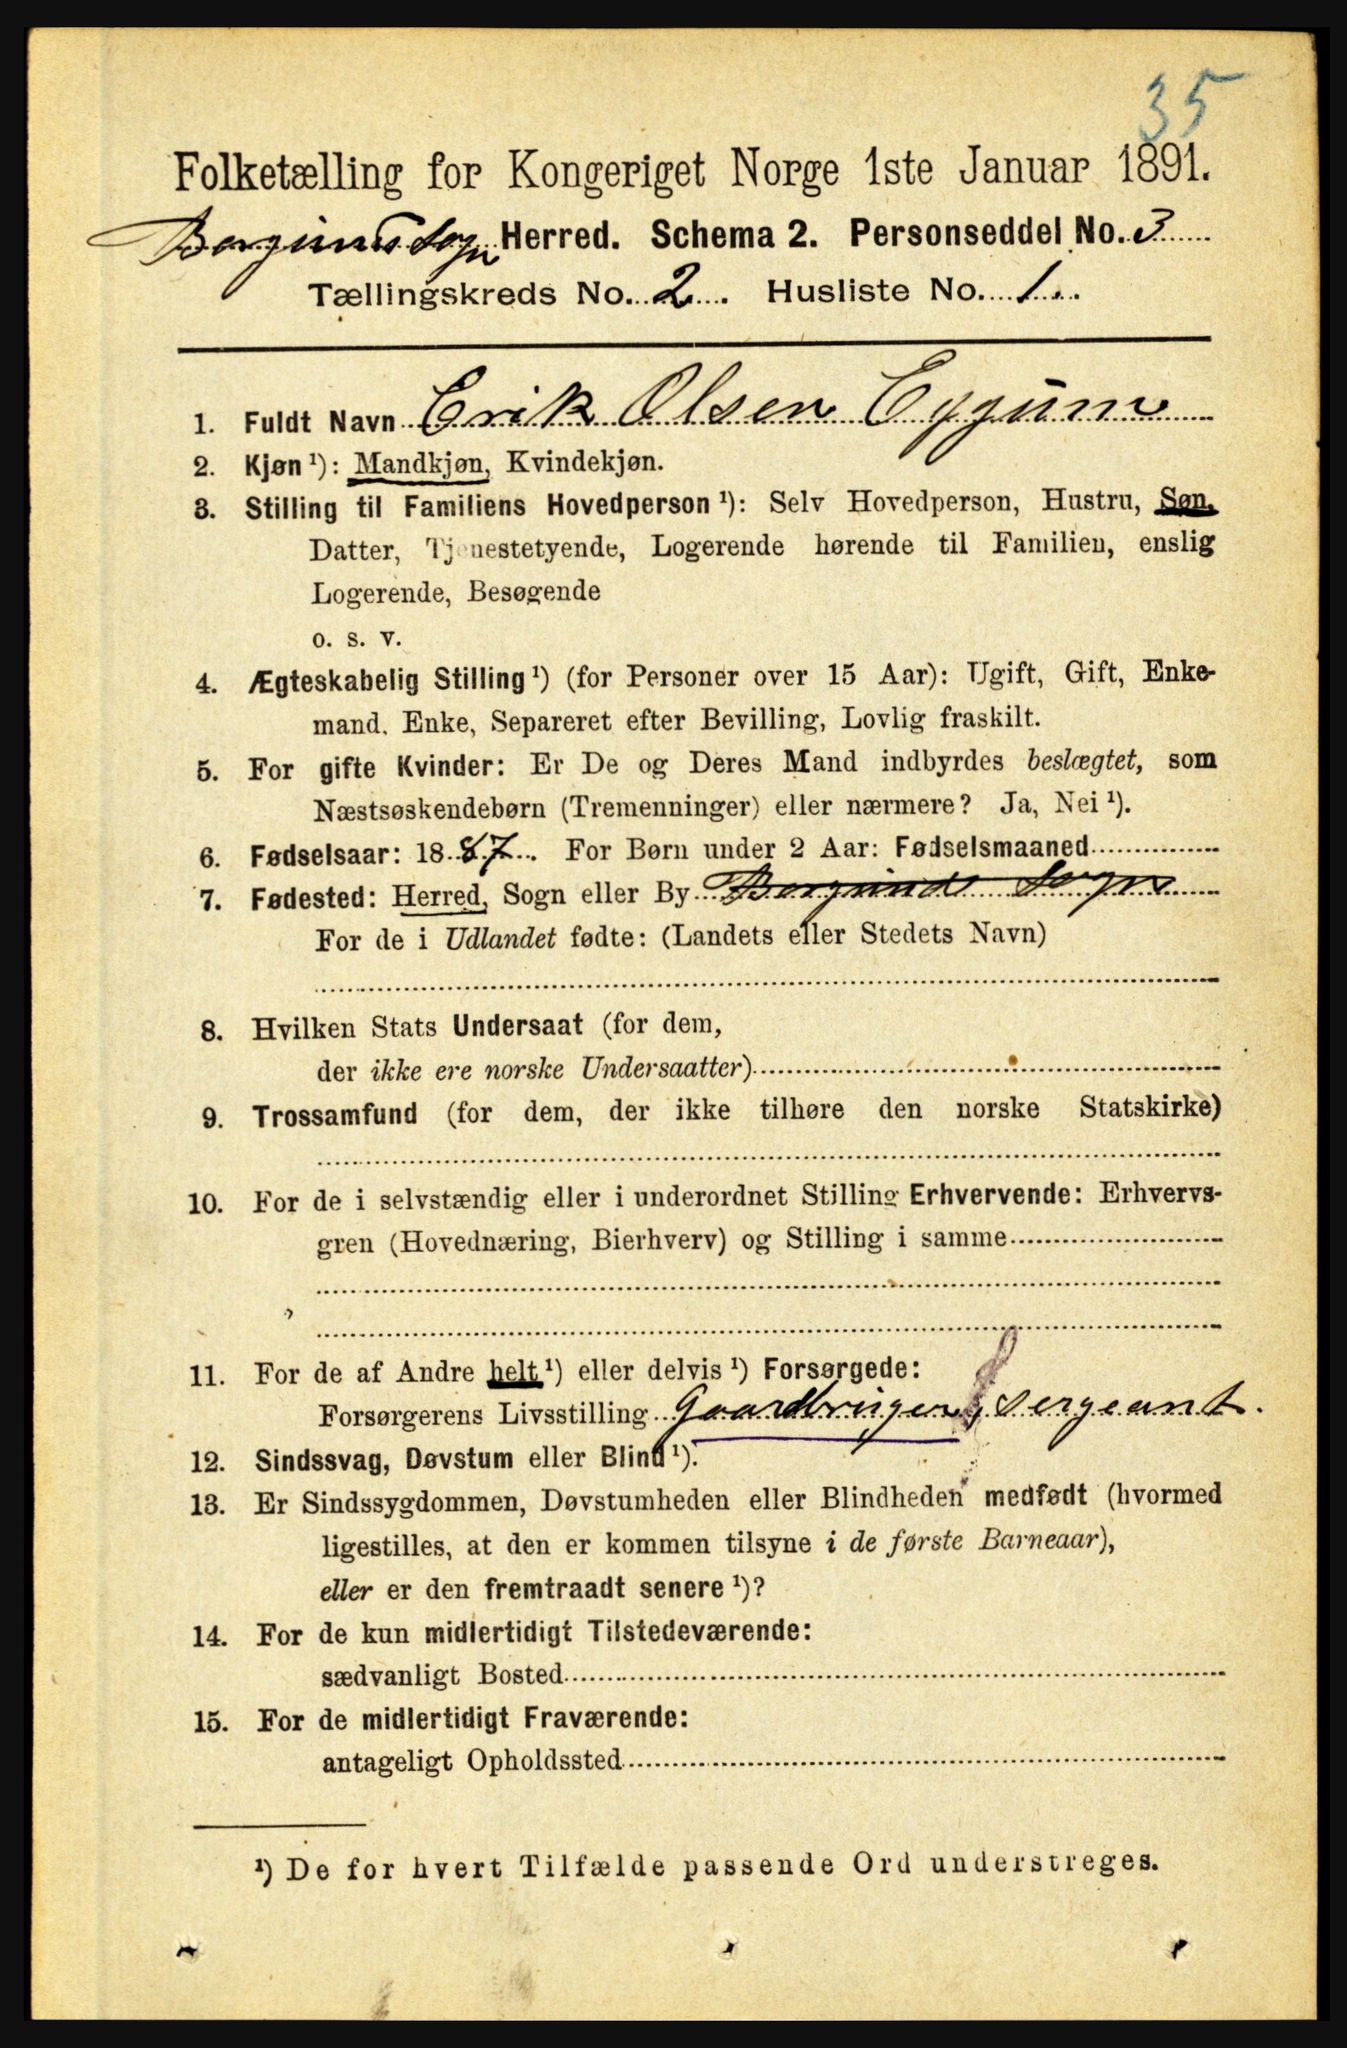 35
Folketælling for Kongeriget Norge 1ste Januar 1891.
Borgund Sogn Herred. Schema 2. Personseddel No. 3
Tællingskreds No. 2. Husliste No. 1.
1. Fuldt Navn Erik Olsen Eggum
2. Kjøn ¹): Mandkjøn, Kvindekjøn.
3. Stilling til Familiens Hovedperson ¹): Selv Hovedperson, Hustru, Søn,
Datter, Tjenestetyende, Logerende hørende til Familien, enslig
Logerende, Besøgende
o. s. v.
4. Ægteskabelig Stilling ¹) (for Personer over 15 Aar): Ugift, Gift, Enke-
mand, Enke, Separeret efter Bevilling, Lovlig fraskilt.
5. For gifte Kvinder: Er De og Deres Mand indbyrdes beslægtet, som
Næstsøskendebørn (Tremenninger) eller nærmere? Ja, Nei ¹).
6. Fødselsaar: 1887. For Børn under 2 Aar: Fødselsmaaned
7. Fødested: Herred, Sogn eller By Borgunds Sogn
For de i Udlandet fødte: (Landets eller Stedets Navn)
8. Hvilken Stats Undersaat (for dem,
der ikke ere norske Undersaatter)
9. Trossamfund (for dem, der ikke tilhøre den norske Statskirke)
10. For de i selvstændig eller i underordnet Stilling Erhvervende: Erhvervs-
gren (Hovednæring, Bierhverv) og Stilling i samme
11. For de af Andre helt ¹) eller delvis ¹) Forsørgede:
Forsørgerens Livsstilling Gaardbruger, Sergeant.
12. Sindssvag, Døvstum eller Blind ¹).
13. Er Sindssygdommen, Døvstumheden eller Blindheden medfødt (hvormed
ligestilles, at den er kommen tilsyne i de første Barneaar),
eller er den fremtraadt senere ¹)?
14. For de kun midlertidigt Tilstedeværende:
sædvanligt Bosted
15. For de midlertidigt Fraværende:
antageligt Opholdssted
¹) De for hvert Tilfælde passende Ord understreges.